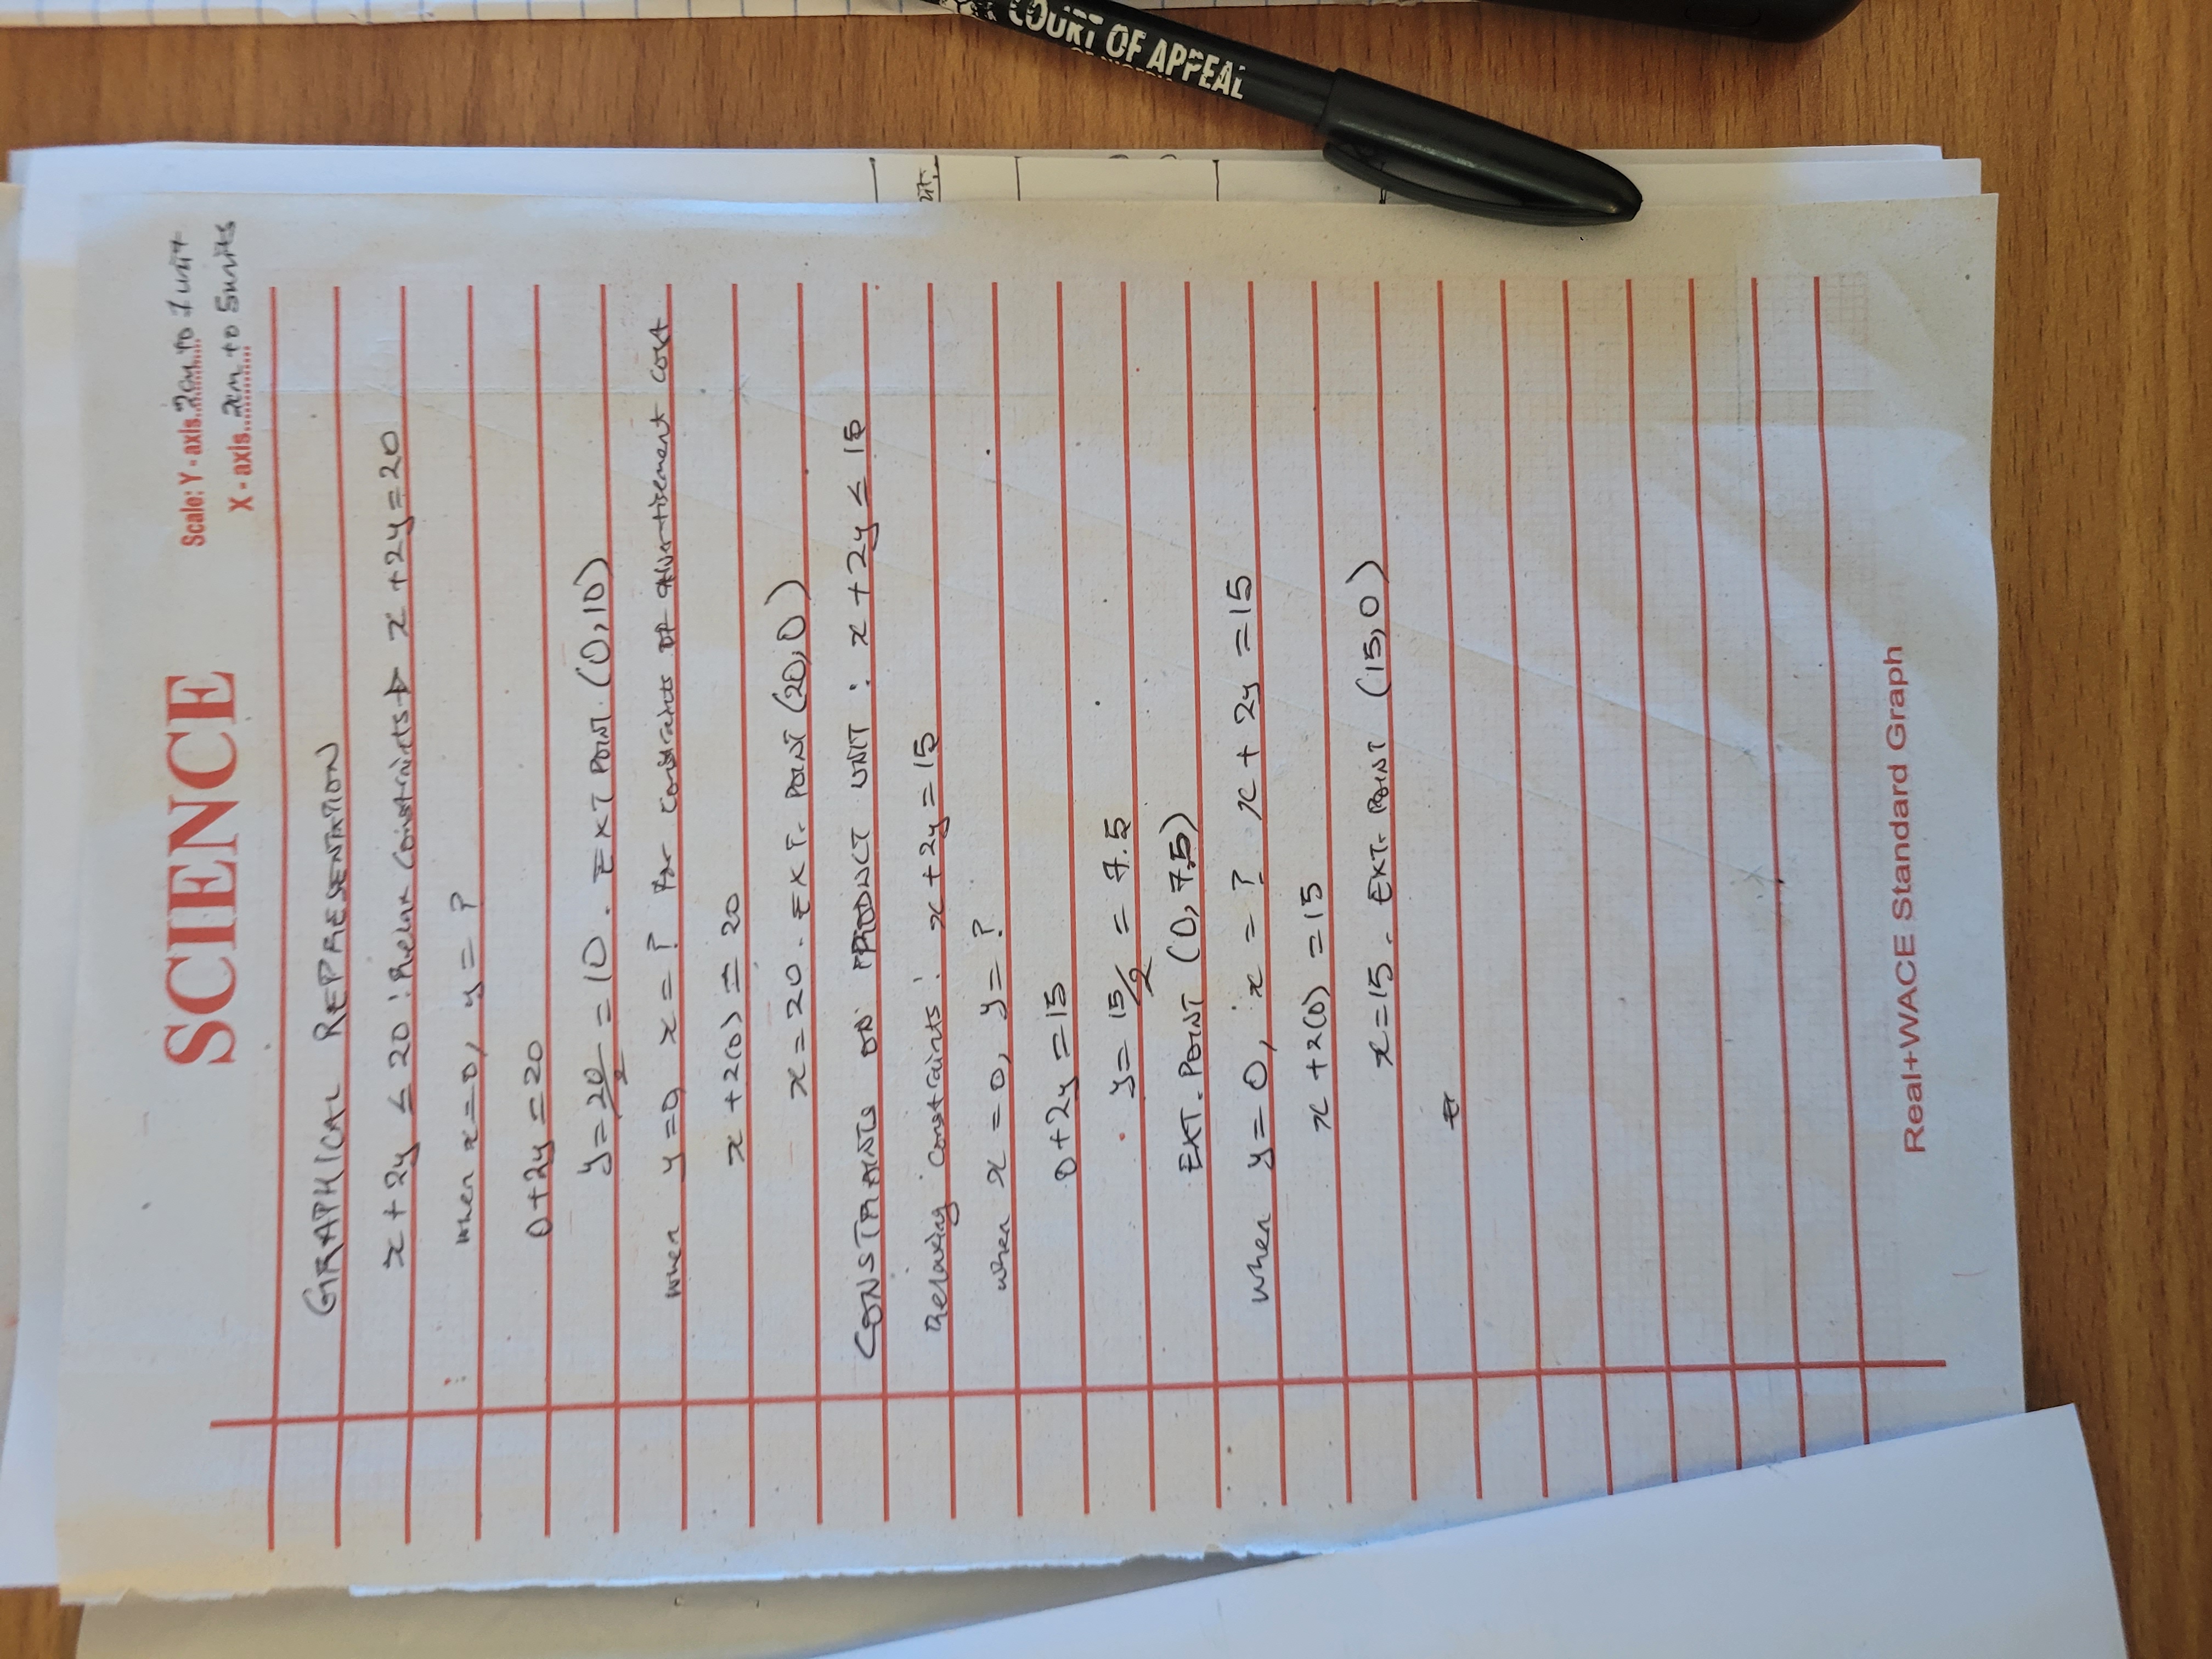 SCIENCE
Scale: Y - axis 2cm to 1 unit
X - axis 2cm to 5units
GRAPHICAL REPRESENTATION
x + 2y ≤ 20 : Relax constraints → x + 2y = 20
when x = 0, y = ?
0 + 2y = 20
y = 20/2 = 10 . EXT POINT. (0, 10)
when y = 0, x = ? For constraints of advertisement cost
x + 2(0) = 20
x = 20 . EXT. POINT (20, 0)
CONSTRAINTS ON PRODUCT UNIT : x + 2y ≤ 15
Relaxing constraints : x + 2y = 15
when x = 0, y = ?
0 + 2y = 15
y = 15/2 = 7.5
EXT. POINT (0, 7.5)
when y = 0, x = ? x + 2y = 15
x + 2(0) = 15
x = 15 . EXT. POINT (15, 0)
Real+WACE Standard Graph
COURT OF APPEAL